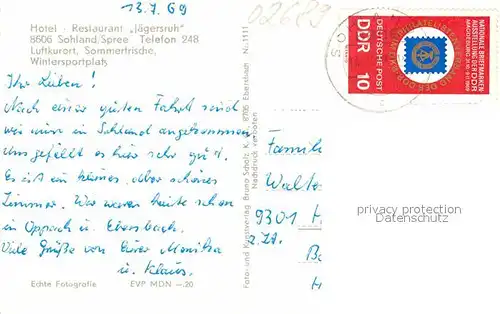 13.7.69
02689
Hotel - Restaurant „Jägersruh"
8606 Sohland/Spree Telefon 248
Luftkurort, Sommerfrische,
Wintersportplatz
Ihr Lieben!
Nach einer guten Fahrt sind
wir nun in Sohland angekommen
Uns gefällt es hier sehr gut.
Es ist ein kleines, aber schönes
Zimmer. War waren heute schon
in Oppach u. Ebersbach.
Viele Grüße von Eurer Monika
u. Klaus.
Echte Fotografie EVP MDN -.20
Foto- und Kunstverlag Bruno Scholz K. 8705 Ebersbach Nr. 1111
Nachdruck verboten
NATIONALE BRIEFMARKEN-
AUSSTELLUNG DER DDR
DEUTSCHE POST
DDR 10
Familie
Walte
9301
z. Zt.
privacy protection
Datenschutz